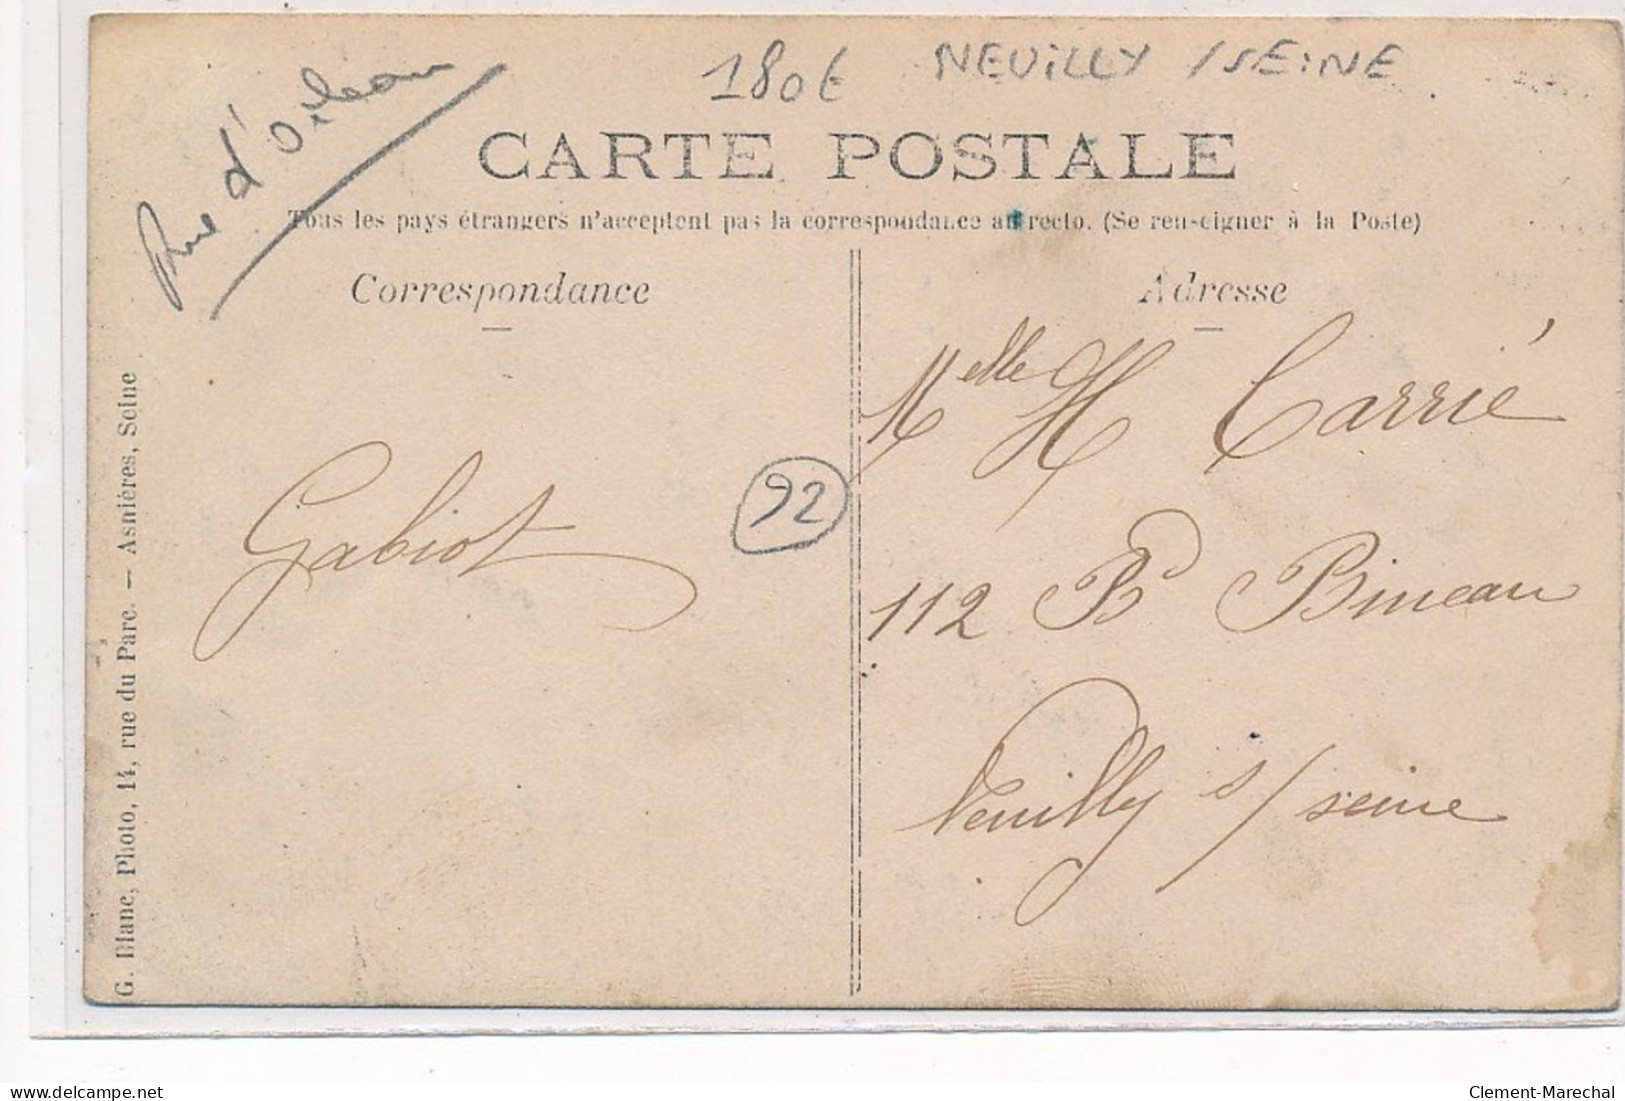 180€ NEUILLY /SEINE
Rue d'Orléans
CARTE POSTALE
Tous les pays étrangers n'acceptent pas la correspondance au recto. (Se renseigner à la Poste)
Correspondance
Adresse
Melle H Carrié
Gabiot
92
112 Bd Bineau
Neuilly s/ seine
G. Blanc, Photo, 14, rue du Parc. — Asnières, Seine
delcampe.net
Clement-Marechal